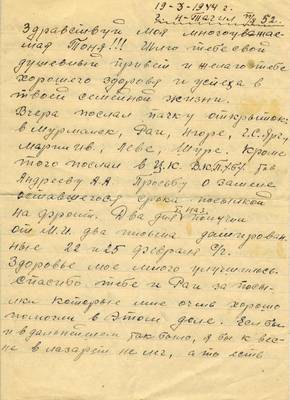 19-3-1944 г.
г. Н-Тагил п/я 52.
Здравствуй Моя многоуважае-
мая Тоня!!! Шлю тебе свой
душевный привет и желаю тебе
хорошего здоровя и успеха в
твоей семейной жизни.
Вчера послал пачку открыток:
в Мурмалек, Раи, Игорю,
Мария Ив., Леве, Шуре. Кроме
того послал в Ц.К. В.К.П.(б) тов
Андрееву А.А. Просьбу о замене
оставшегося срока посылкой
на фронт. Два дня назад получил
от М.И. два письма датирован-
ные 22 и 25 февраля с/г.
Здоровье мое много улучшилось.
Спасибо тебе и Раи за посы-
лки которые мне очень хорошо
помогли в этом деле. Если бы
и в дальнейшем так было, я бы к вес-
не в лазарет не лег, а то есть